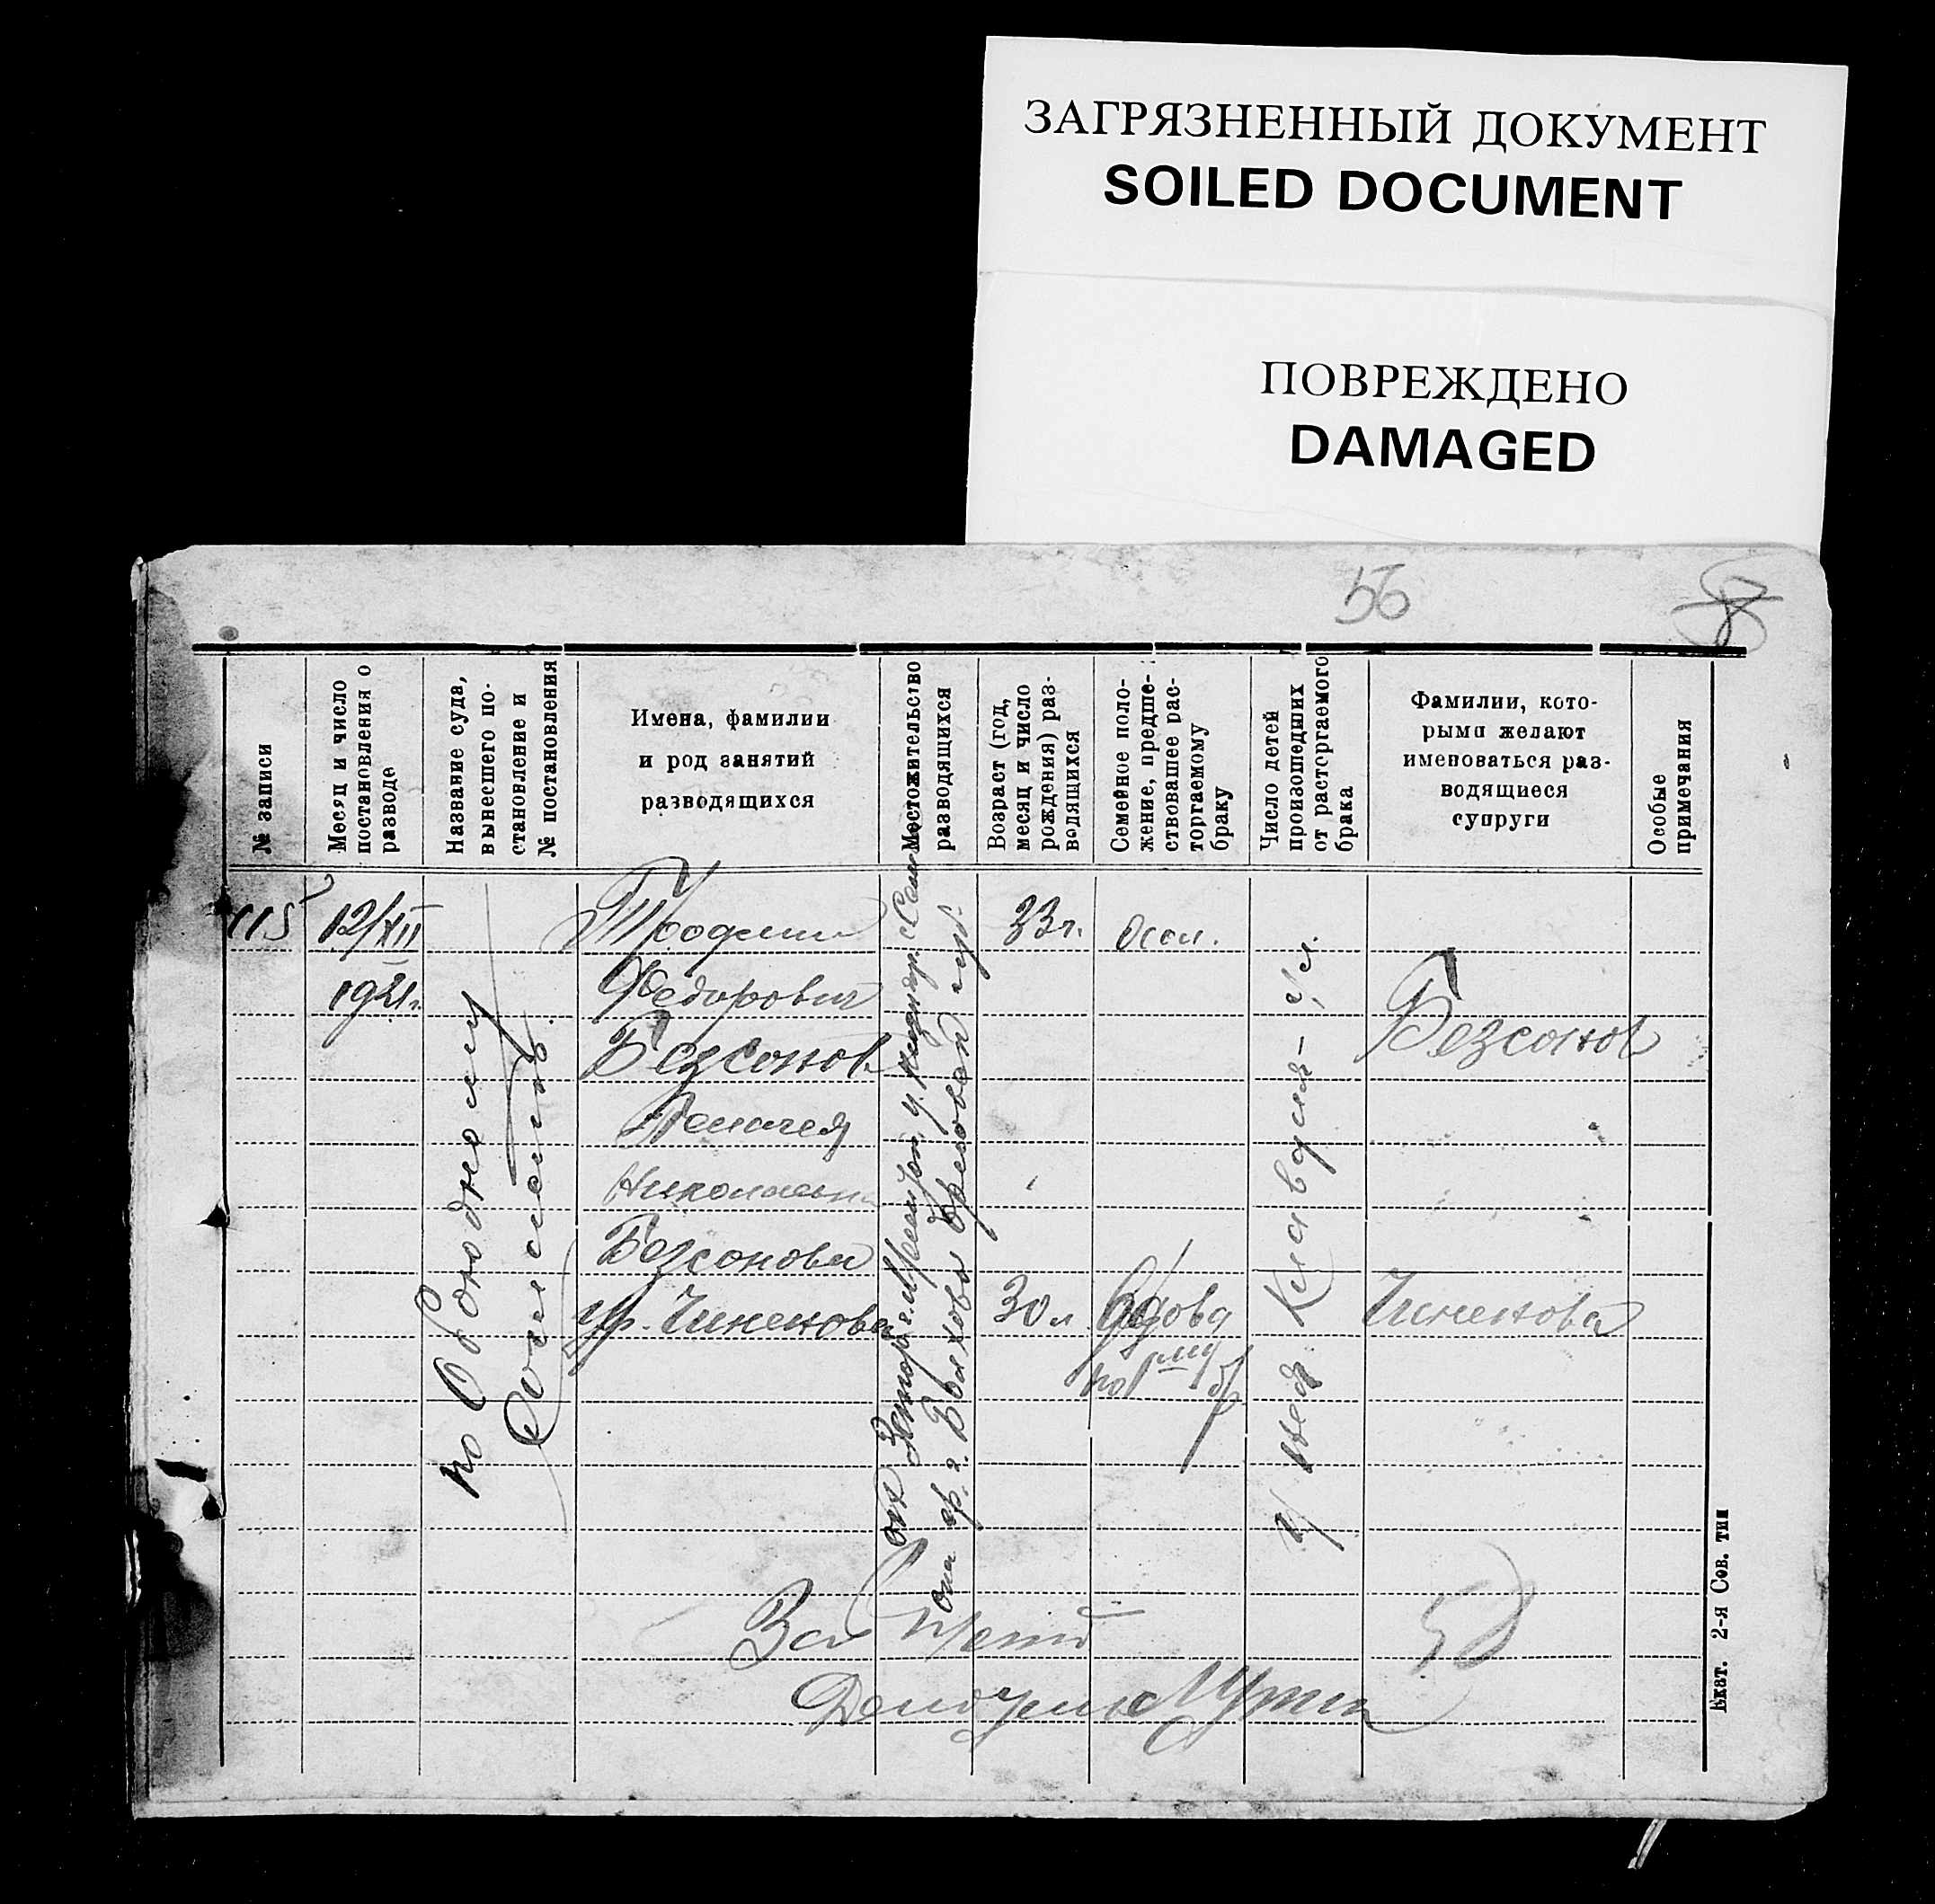 ЗАГРЯЗНЕННЫЙ ДОКУМЕНТ
SOILED DOCUMENT
ПОВРЕЖДЕНО
DAMAGED
56
№ записи
Месяц и число
постановления о
разводе
Название суда,
вынесшего по-
становление и
№ постановления
Имена, фамилии
и род занятий
разводящихся
Местожительство
разводящихся
Возраст (год,
месяц и число
рождения) раз-
водящихся
Семейное поло-
жение, предше-
ствовашее рас-
торгаемому
браку
Число детей
произошедших
от расторгаемого
брака
Фамилии, кото-
рыми желают
именоваться раз-
водящиеся
супруги
Особые
примечания
115
12/XII
1921г.
по Обоюдному
Соглашению
Трофим
Федорович
Безсонов
Пелагея
Николаевна
Безсонова
ур. Чиненова
33г.
30 л
Вдова
по
Клавдия
Безсонов
Чиненова
Зав
Делопр
Екат. 2-я Сов. тип